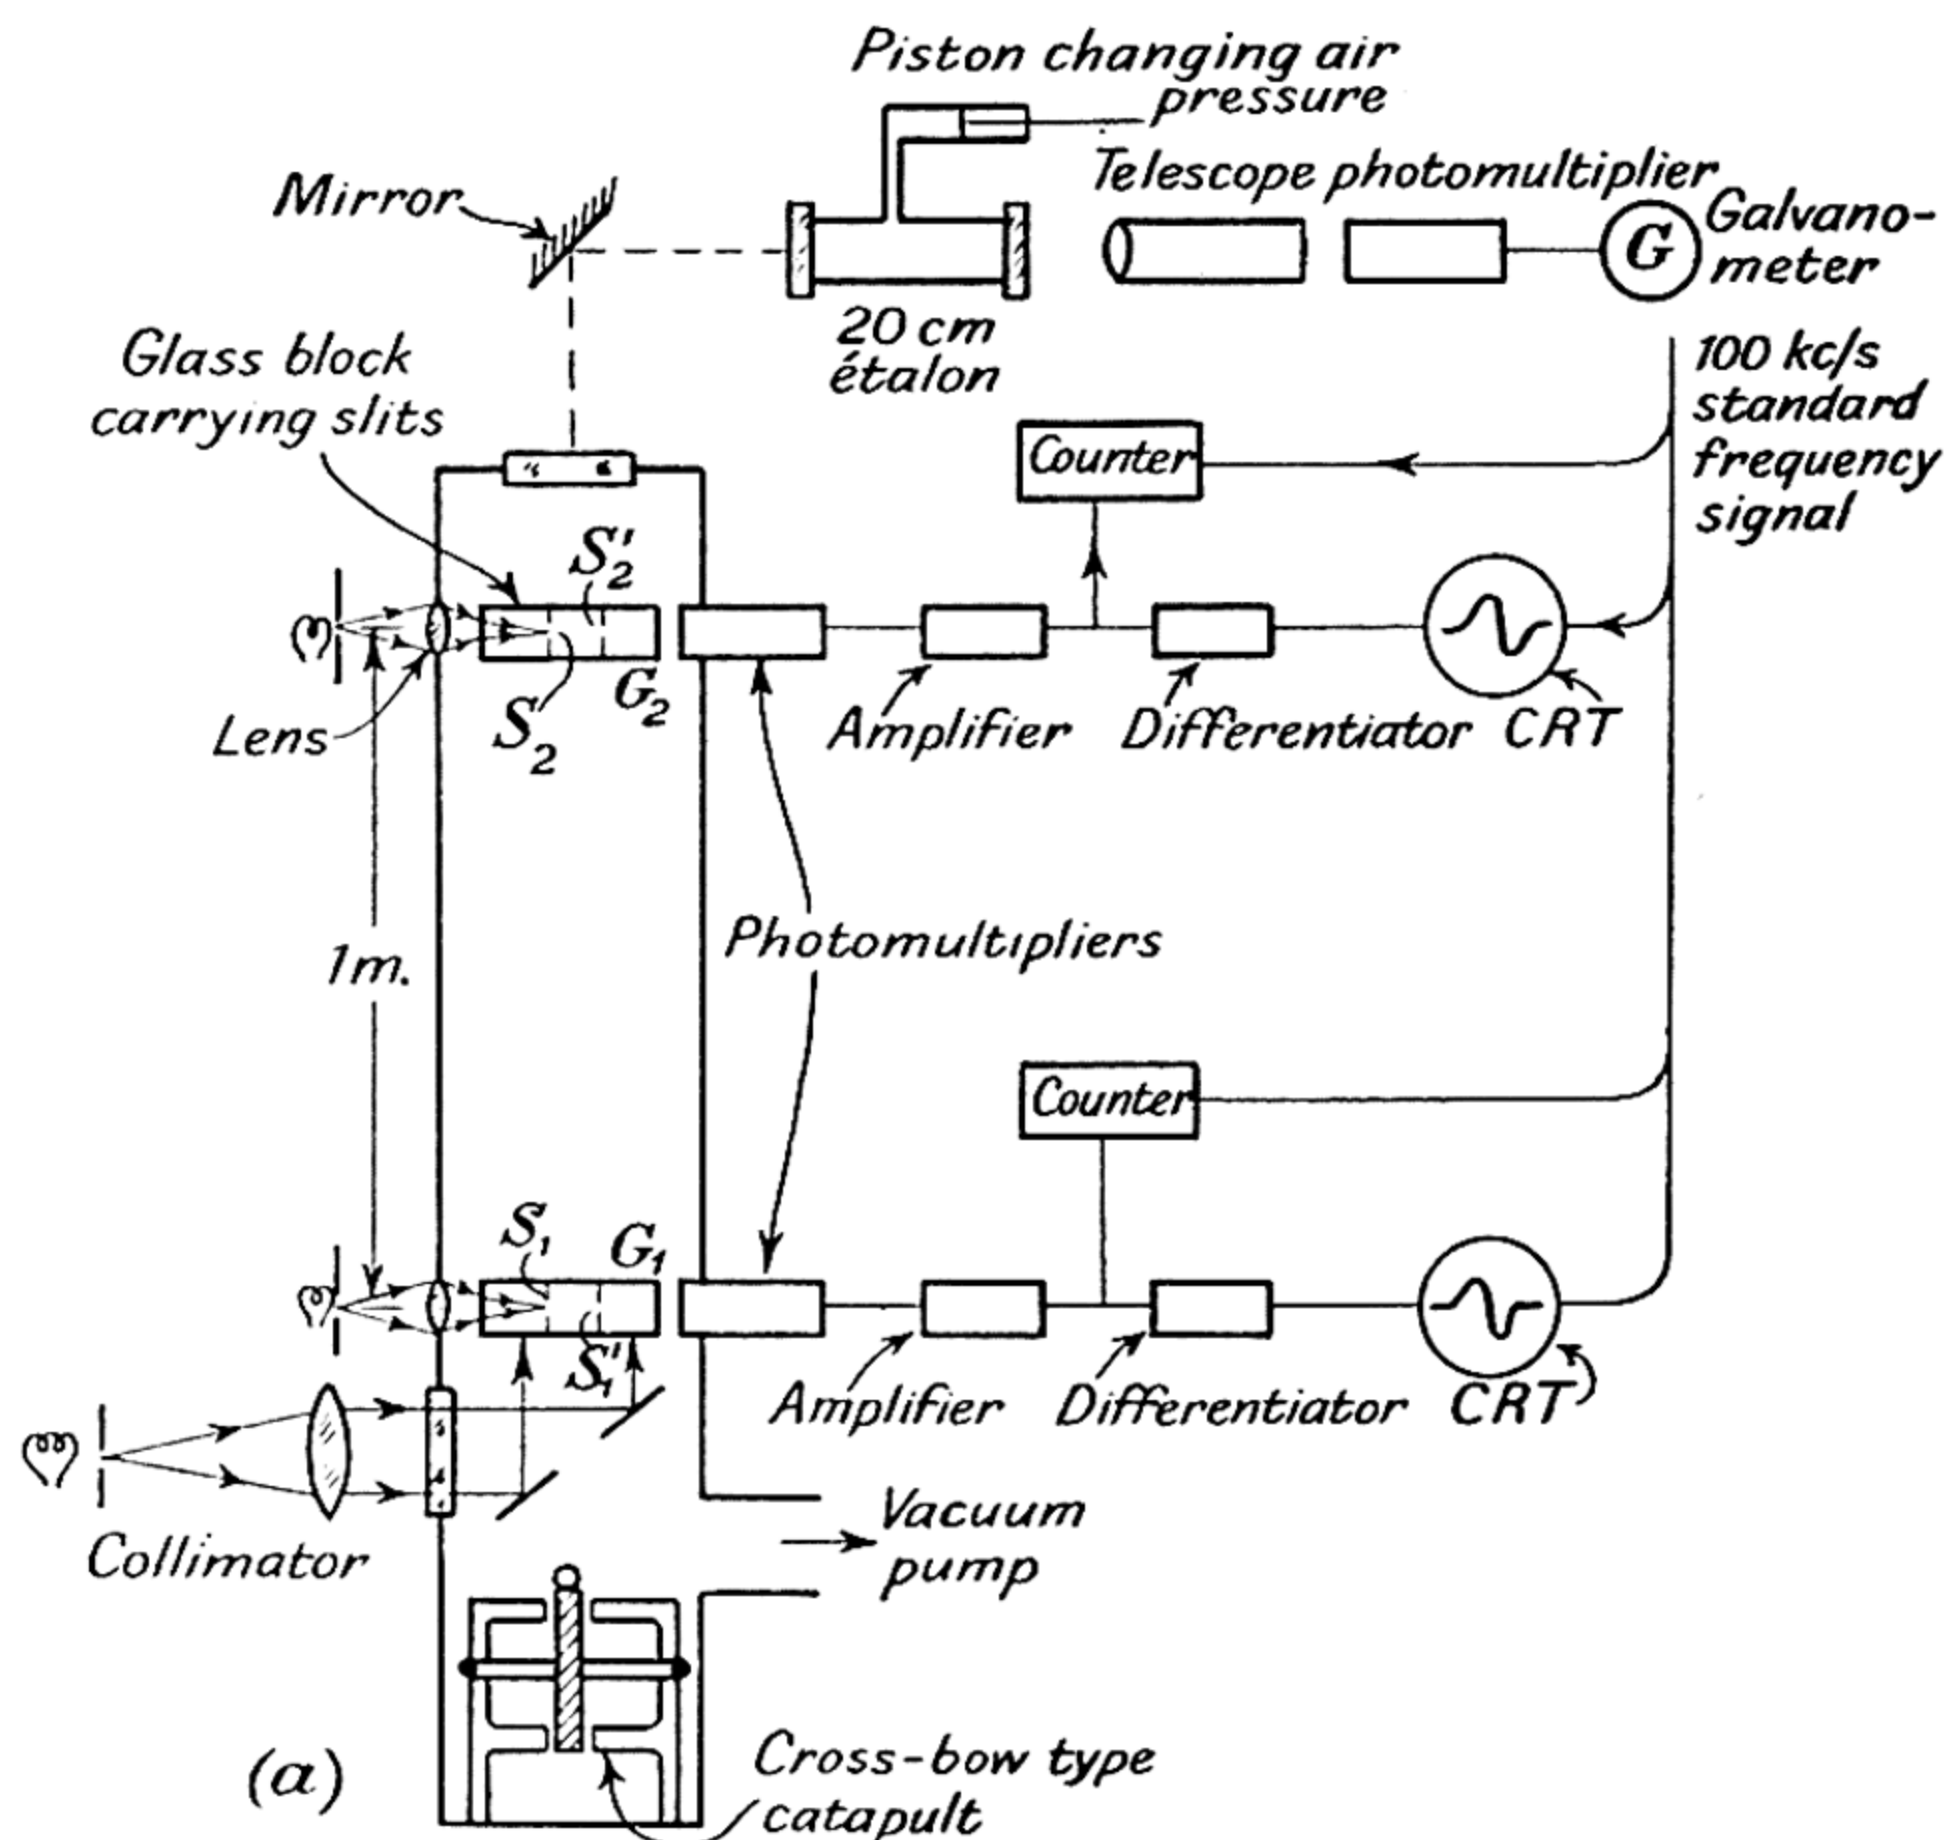 Piston changing air
pressure
Mirror
Telescope photomultiplier
Galvano-
meter
G
20 cm
étalon
Glass block
carrying slits
100 kc/s
standard
frequency
signal
Counter
S'2
S2
G2
Lens
Amplifier
Differentiator
CRT
1m.
Photomultipliers
Counter
S1
G1
S'1
Amplifier
Differentiator
CRT
Collimator
Vacuum
pump
(a)
Cross-bow type
catapult